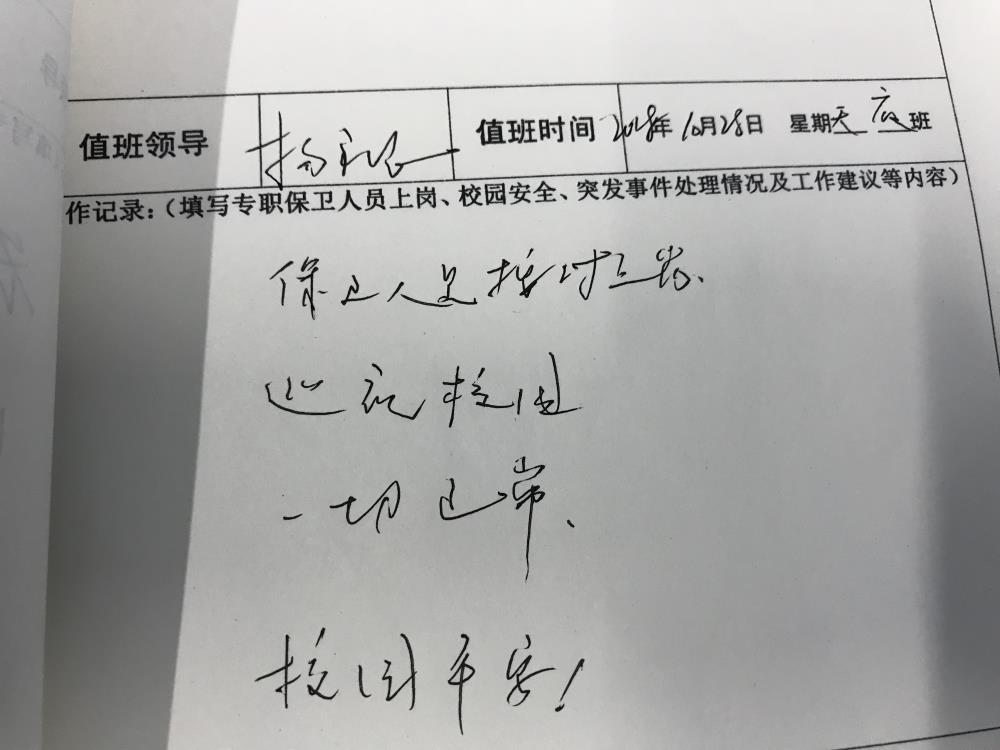 值班领导 杨 值班时间 2018年10月28日 星期天 夜班
作记录：（填写专职保卫人员上岗、校园安全、突发事件处理情况及工作建议等内容）
保卫人员按时上岗、
巡视校园
一切正常、
校园平安！